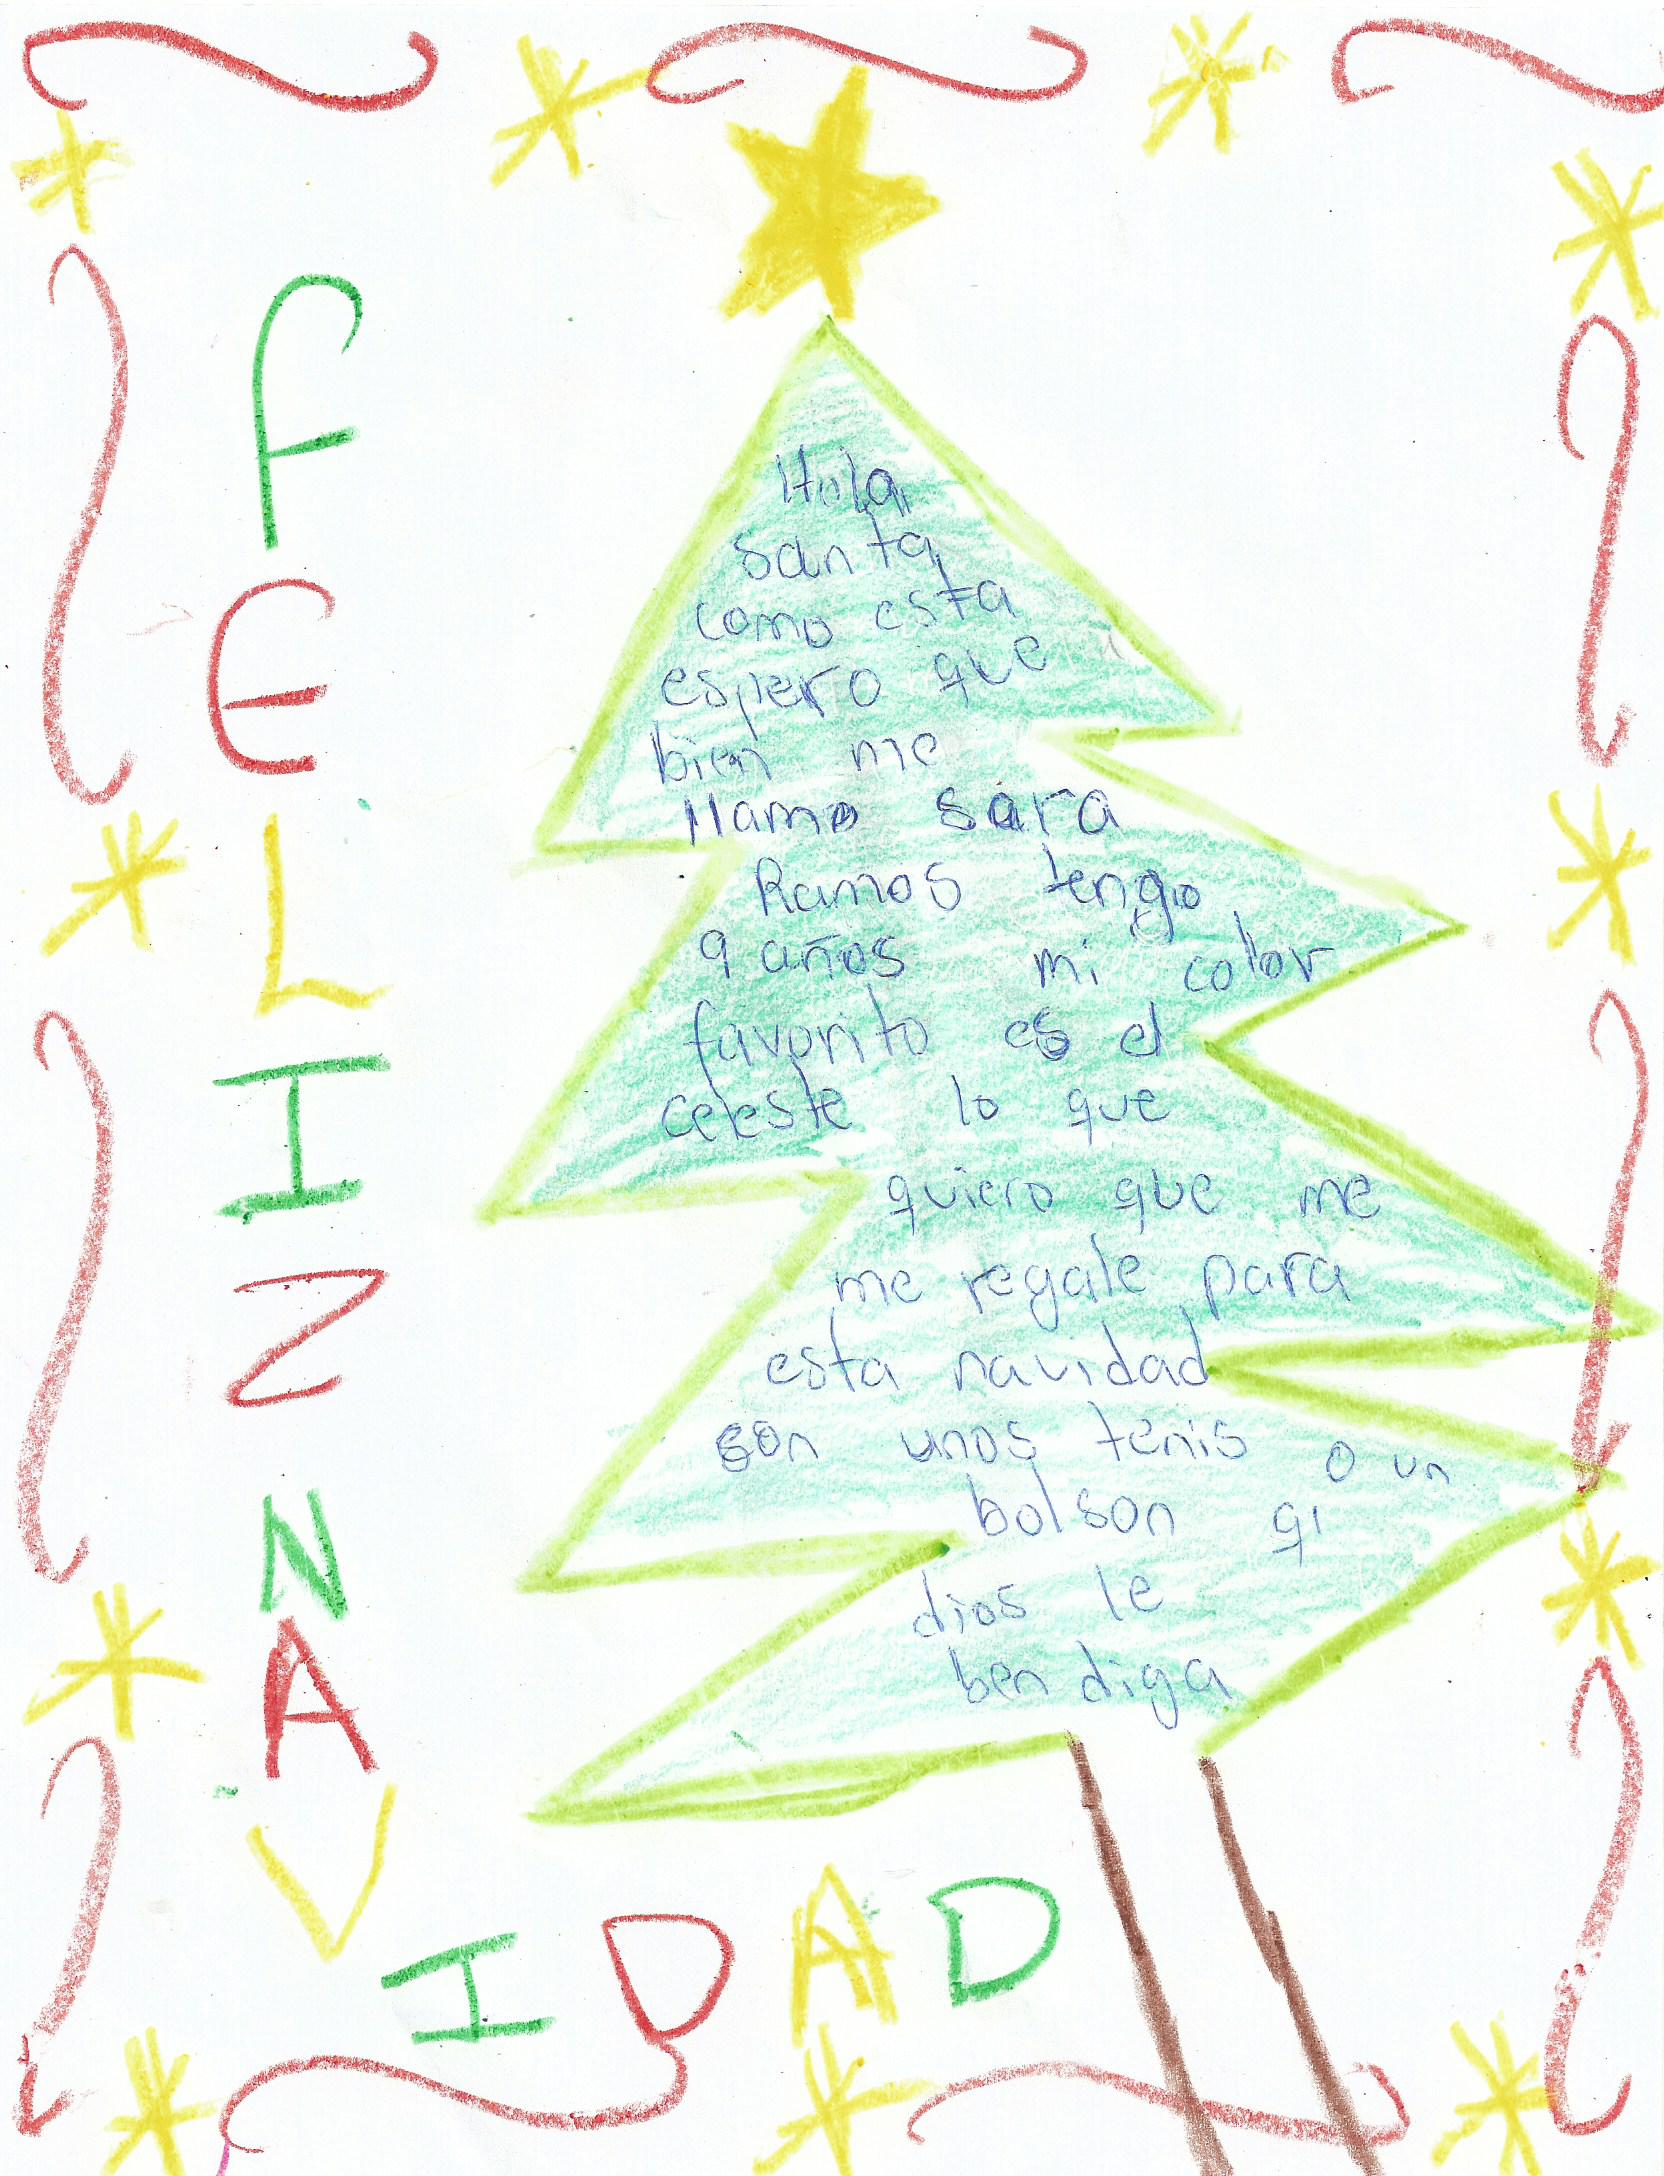 FELIZ NAVIDAD
Hola
santa
como esta
espero que
bien me
llamo sara
Ramos tengo
9 años mi color
favorito es el
celeste lo que
quiero que me
me regale para
esta navidad
son unos tenis o un
bolson qi
dios le
ben diga